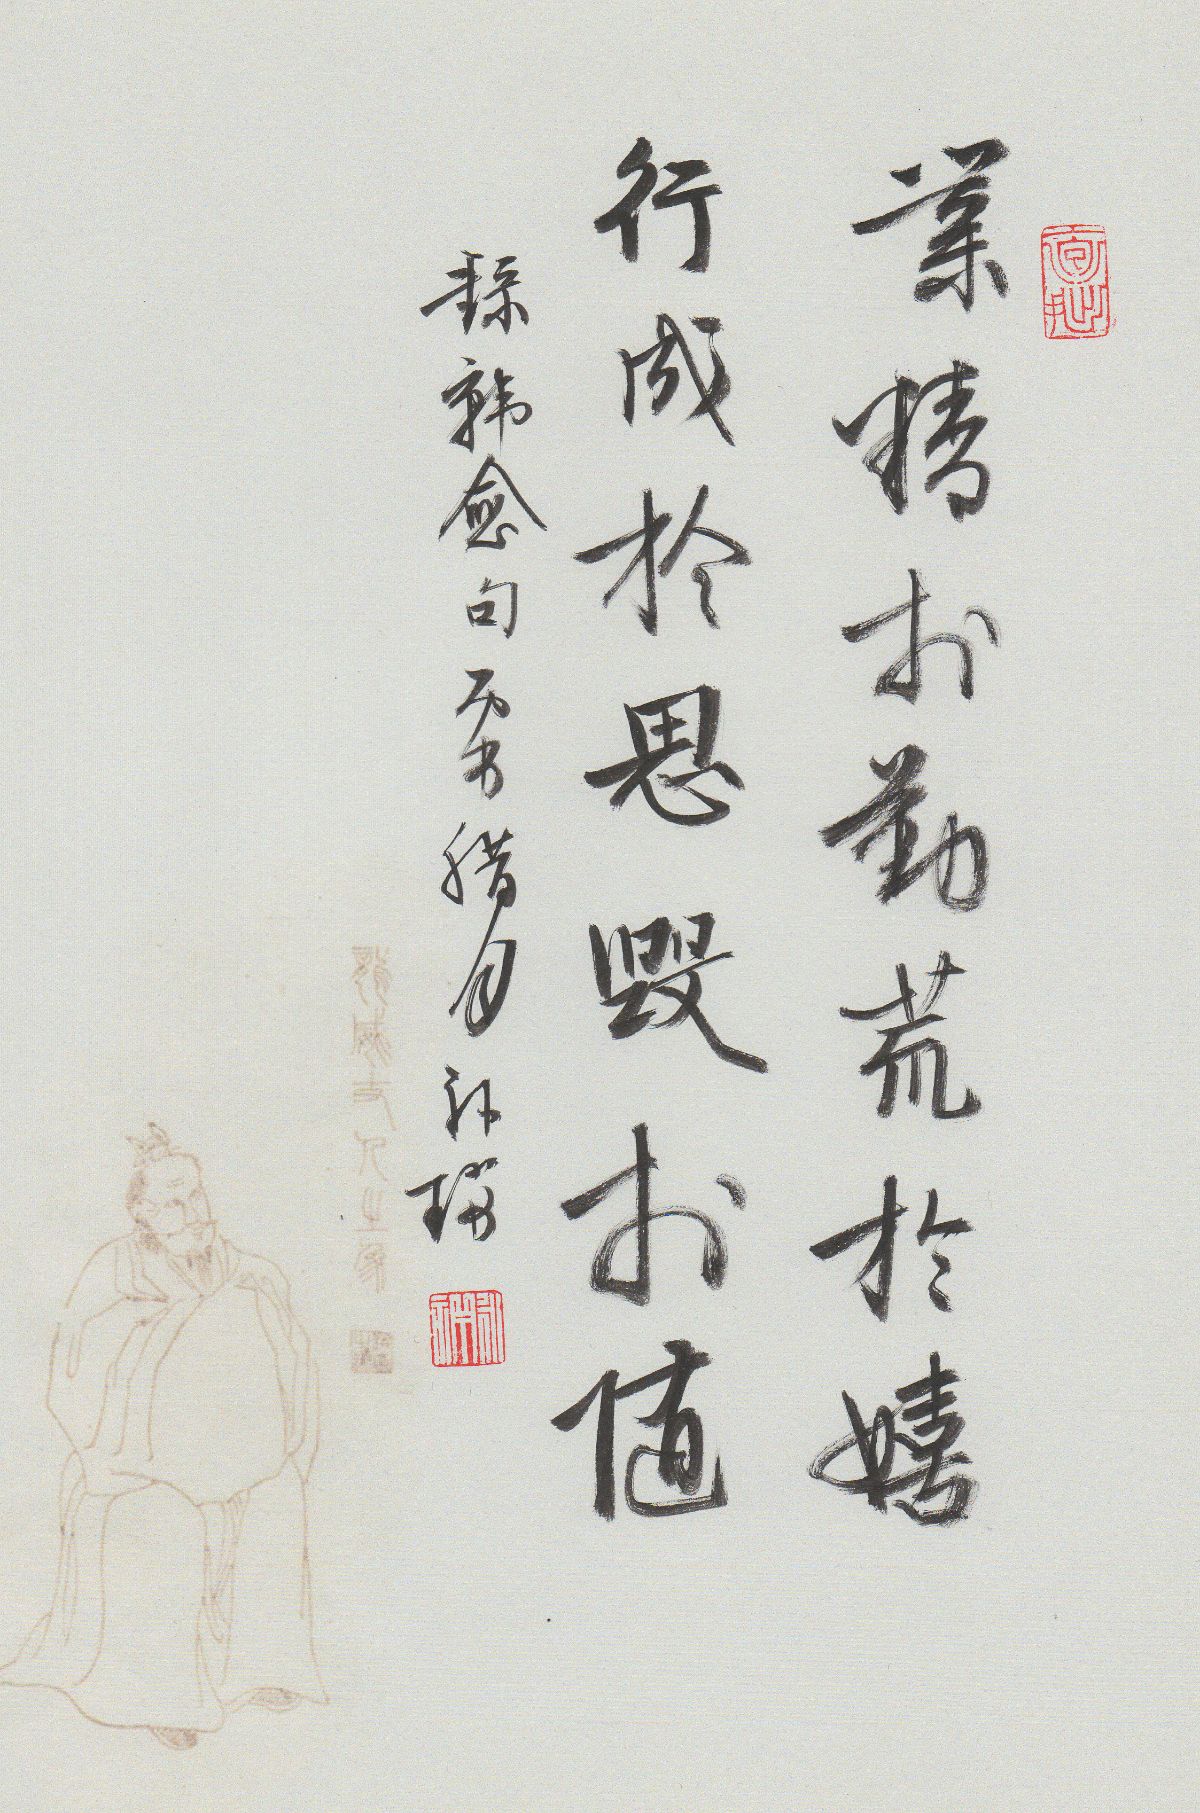 業精於勤荒於嬉
行成於思毀於随
録韓愈句
腊月